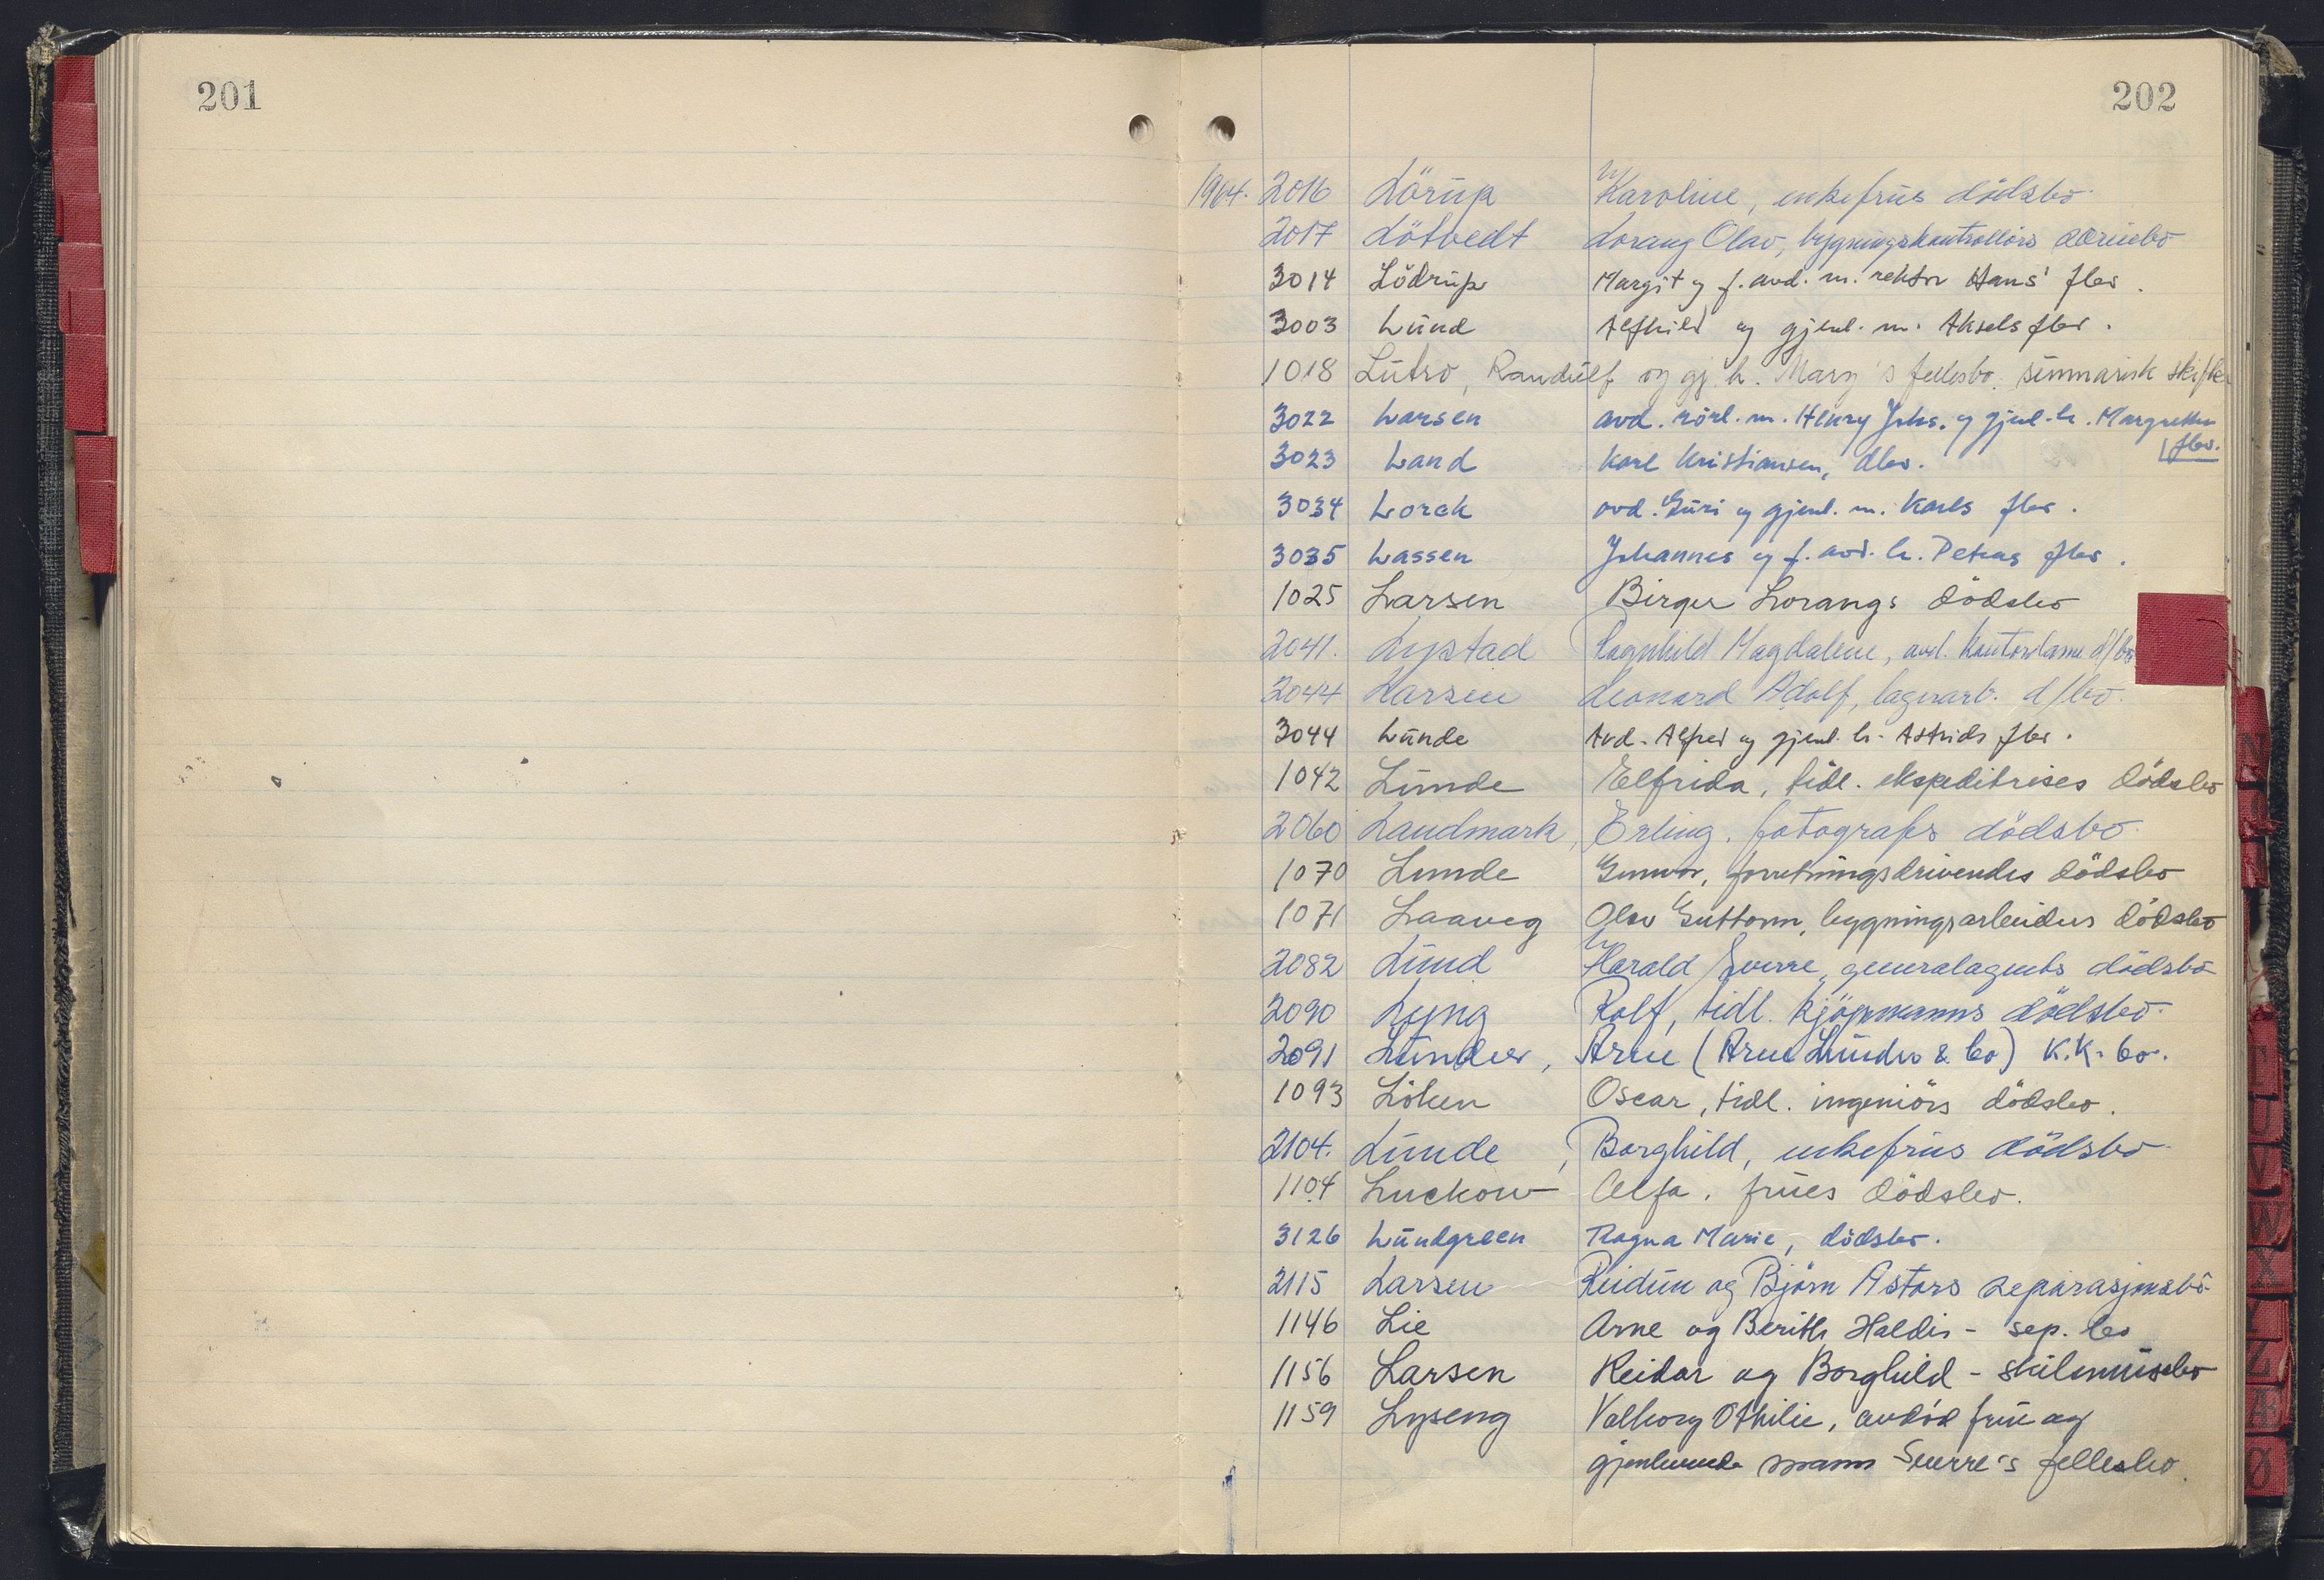 201
202
1964. 2016 Lörup Karoline, enkefrus dödsbo
2017 Lötvedt Lorang Olav, bygningskontrollörs særiebo
3014 Lödrup Margit og f. avd. m. rektor Hans' fbo.
3003 Lund Alfhild og gjenl. m. Aksels fbo.
1018 Lutro, Randulf og gj. h. Mary's fellesbo, summarisk skifte
3022 Larsen avd. rörl. m. Henry Johs. og gjenl. h. Margrethe
fbo.
3023 Land Karl Kristiansen, dbo.
3034 Lorck avd. Guri og gjenl. m. Karls fbo.
3035 Lassen Johannes og f. avd. h. Petras fbo.
1025 Larsen Birger Lorangs dödsbo
2041. Lystad Ragnhild Magdalene, avd. kontordame d/bo
2044 Larsen Leonard Adolf, lagerarb. d/bo.
3044 Lunde Avd. Alfred og gjenl. h. Astrids fbo.
1042 Lunde Elfrida, tidl. ekspeditrises dödsbo
2060 Landmark, Erling, fotografs dödsbo
1070 Lunde Gunvor, forretningsdrivendes dödsbo
1071 Laaveg Olav Guttorm, bygningsarbeiders dödsbo
2082 Lund Harald Sverre, generalagents dödsbo
2090 Lyng Rolf, tidl. kjöpmanns dödsbo.
2091 Lunder, Arne (Arne Lunder & Co) K.K. bo.
1093 Löken Oscar, tidl. ingeniörs dödsbo.
2104. Lunde, Borghild, enkefrus dödsbo
1104 Luckow Alfa, frues dödsbo.
3126 Lundgreen Ragna Marie, dödsbo.
2115 Larsen Reidun og Björn Astors separasjonsbo
1146 Lie Arne og Berith Haldis - sep. bo
1156 Larsen Reidar og Borghild - skilsmissebo
1159 Lyseng Valborg Othilie, avdöd frue og
gjenlevende mann Sverre's fellesbo.
N
T
U
V
W
X
Z
Æ
Ø